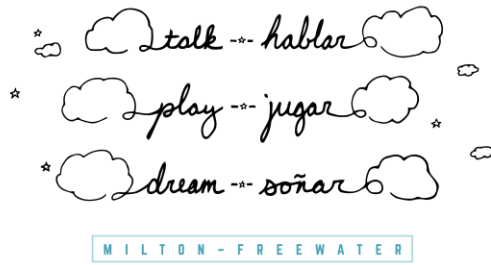 talk -☆- hablar
play -☆- jugar
dream -☆- soñar
MILTON-FREEWATER